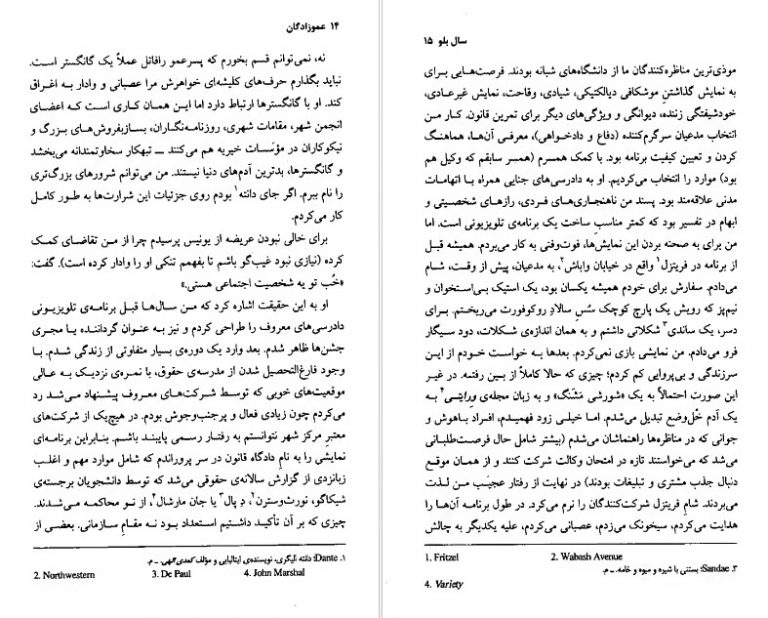 ۱۴ عموزادگان
نه، نمی‌توانم قسم بخورم که پسرعمو رافائل عملاً یک گانگستر است.
نباید بگذارم حرف‌های کلیشه‌ای خواهرش مرا عصبانی و وادار به اغراق
کند. او با گانگسترها ارتباط دارد اما این همان کاری است که اعضای
انجمن شهر، مقامات شهری، روزنامه‌نگاران، بسازبفروش‌های بزرگ و
نیکوکاران در مؤسسات خیریه هم می‌کنند ــ تبهکار سخاوتمندانه می‌بخشد
و گانگسترها، بدترین آدم‌های دنیا نیستند. من می‌توانم شرورهای بزرگ‌تری
را نام ببرم. اگر جای دانته۱ بودم روی جزئیات این شرارت‌ها به طور کامل
کار می‌کردم.
برای خالی نبودن عریضه از یونیس پرسیدم چرا از من تقاضای کمک
کرده (نیازی نبود غیب‌گو باشم تا بفهمم تنکی او را وادار کرده است). گفت:
«خُب تو یه شخصیت اجتماعی هستی.»
او به این حقیقت اشاره کرد که من سال‌ها قبل برنامه‌ی تلویزیونی
دادرسی‌های معروف را طراحی کردم و نیز به عنوان گرداننده یا مجری
جشن‌ها ظاهر شدم. بعد وارد یک دوره‌ی بسیار متفاوتی از زندگی شدم. با
وجود فارغ‌التحصیل شدن از مدرسه‌ی حقوق، با نمره‌ی نزدیک به عالی
موقعیت‌های خوبی که توسط شرکت‌های معروف پیشنهاد می‌شد رد
می‌کردم چون زیادی فعال و پرجنب‌وجوش بودم. در هیچ‌یک از شرکت‌های
معتبر مرکز شهر نتوانستم به رفتار رسمی پایبند باشم. بنابراین برنامه‌ای
نمایشی را به نام دادگاه قانون در سر پروراندم که شامل موارد مهم و اغلب
زبانزدی از گزارش سالانه‌ی حقوقی می‌شد که توسط دانشجویان برجسته‌ی
شیکاگو، نورث‌وسترن۲، دِ پال۳ یا جان مارشال۴، از نو محاکمه می‌شدند.
چیزی که بر آن تأکید داشتیم استعداد بود نه مقام سازمانی. بعضی از
۱. Dante: دانته آلیگری، نویسنده‌ی ایتالیایی و مؤلف کمدی الهی. ــ م.
2. Northwestern 3. De Paul 4. John Marshal
سال بلو ۱۵
موذی‌ترین مناظره‌کنندگان ما از دانشگاه‌های شبانه بودند. فرصت‌هایی برای
به نمایش گذاشتنِ موشکافی دیالکتیکی، شیادی، وقاحت، نمایش غیرعادی،
خودشیفتگی زننده، دیوانگی و ویژگی‌های دیگر برای تمرین قانون. کار من
انتخاب مدعیان سرگرم‌کننده (دفاع و دادخواهی)، معرفی آن‌ها، هماهنگ
کردن و تعیین کیفیت برنامه بود. با کمک همسرم (همسر سابقم که وکیل هم
بود) موارد را انتخاب می‌کردیم. او به دادرسی‌های جنایی همراه با اتهامات
مدنی علاقه‌مند بود. پسند من ناهنجاری‌های فردی، رازهای شخصیتی و
ابهام در تفسیر بود که کمتر مناسب ساخت یک برنامه‌ی تلویزیونی است. اما
من برای به صحنه بردن این نمایش‌ها، فوت‌وفنی به کار می‌بردم. همیشه قبل
از برنامه در فریتزل۱ واقع در خیابان واباش۲، به مدعیان، پیش از وقت، شام
می‌دادم. سفارش برای خودم همیشه یکسان بود، یک استیک بی‌استخوان و
نیم‌پز که رویش یک پارچ کوچک سُس سالاد روکوفورت می‌ریختم. برای
دسر، یک ساندی۳ شکلاتی داشتم و به همان اندازه‌ی شکلات، دود سیگار
فرو می‌دادم. من نمایشی بازی نمی‌کردم. بعدها به خواست خودم از این
سرزندگی و بی‌پروایی کم کردم؛ چیزی که حالا کاملاً از بین رفته. در غیر
این صورت احتمالاً به یک «شورشی مَشَنگ» و به زبان مجله‌ی ورایتی۴ به
یک آدم خُل‌وضع تبدیل می‌شدم. اما خیلی زود فهمیدم، افراد باهوش و
جوانی که در مناظره‌ها راهنماشان می‌شدم (بیشتر شامل حال فرصت‌طلبانی
می‌شد که می‌خواستند تازه در امتحان وکالت شرکت کنند و از همان موقع
دنبال جذب مشتری و تبلیغات بودند) در نهایت از رفتار عجیب من لذت
می‌بردند. شام فریتزل شرکت‌کنندگان را نرم می‌کرد. در طول برنامه آن‌ها را
هدایت می‌کردم، سیخونک می‌زدم، عصبانی می‌کردم، علیه یکدیگر به چالش
1. Fritzel 2. Wabash Avenue
۳. Sandae: بستنی با شیره و میوه و خامه. ــ م.
4. Variety